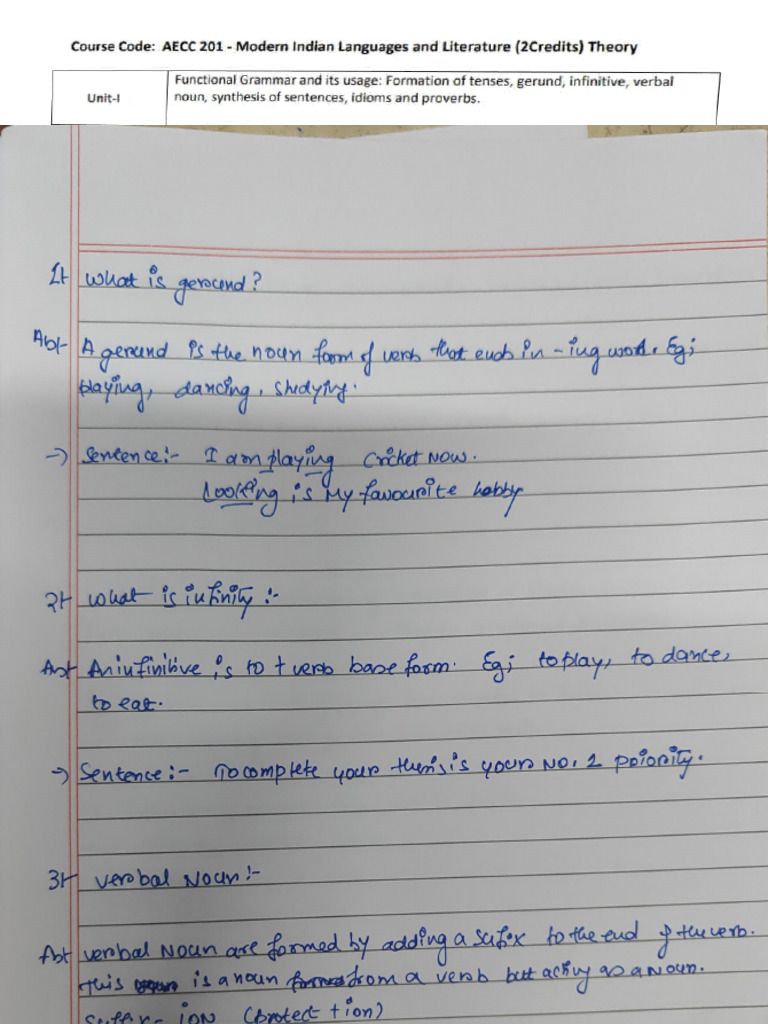 Course Code: AECC 201 - Modern Indian Languages and Literature (2Credits) Theory
Unit-I
Functional Grammar and its usage: Formation of tenses, gerund, infinitive, verbal
noun, synthesis of sentences, idioms and proverbs.
1) What is gerund?
Ans:- A gerund is the noun form of verb that ends in -ing word. Eg;
playing, dancing, studying.
→ Sentence:- I am playing cricket NOW.
is My favourite hobby
2) What is infinity :-
Ans An infinitive is to + verb base form. Eg; to play, to dance,
to eat.
→ Sentence:- To complete your thesis is your NO. 1 priority.
3) verbal Noun:-
Ans verbal Noun are formed by adding a sufix to the end of the verb.
This is a noun from a verb but acting as a Noun.
Suffix- ION (protect + ion)